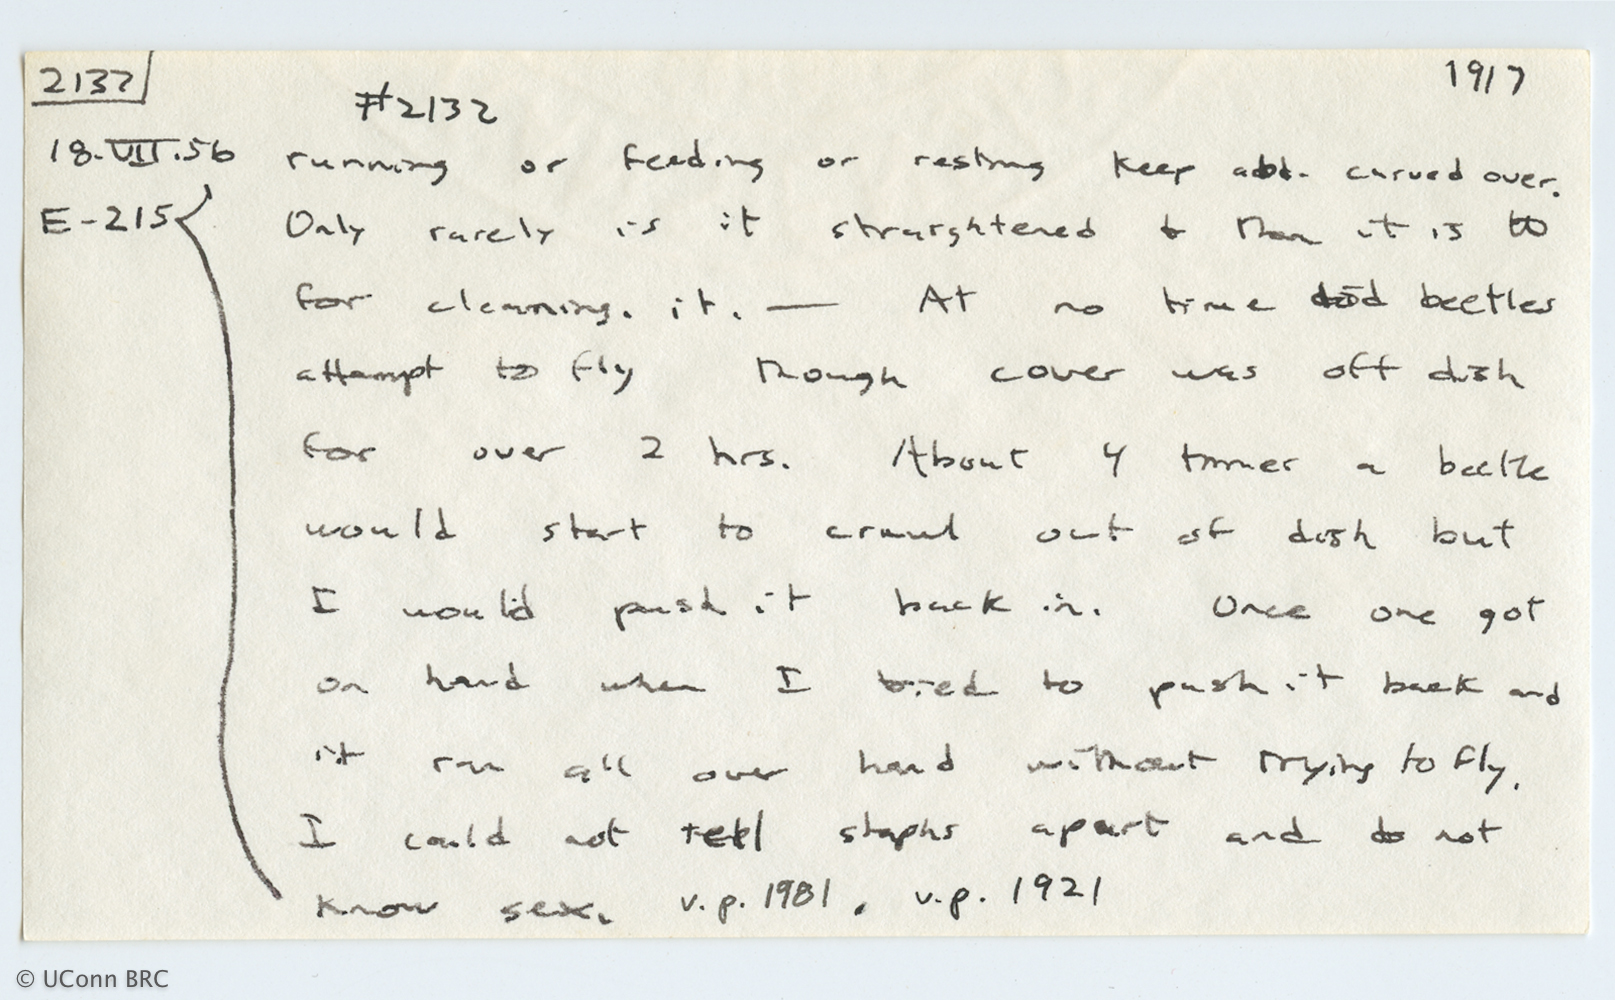 2132 1917
#2132
18.VII.56 running or feeding or resting keep abd. curved over.
E-215 Only rarely is it straightened & then it is to
for cleaning. it. — At no time did beetles
attempt to fly though cover was off dish
for over 2 hrs. About 4 times a beetle
would start to crawl out of dish but
I would push it back in. Once one got
on hand when I tried to push it back and
it ran all over hand without trying to fly.
I could not tell staphs apart and do not
know sex. v.p. 1981, v.p. 1921
© UConn BRC